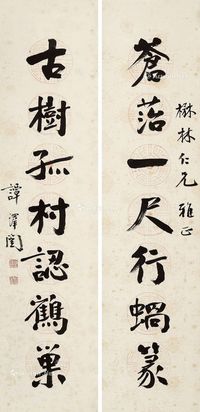 楙林仁兄雅正
蒼苔一尺行蝸篆
古樹孤村認鶴巢
譚澤闓